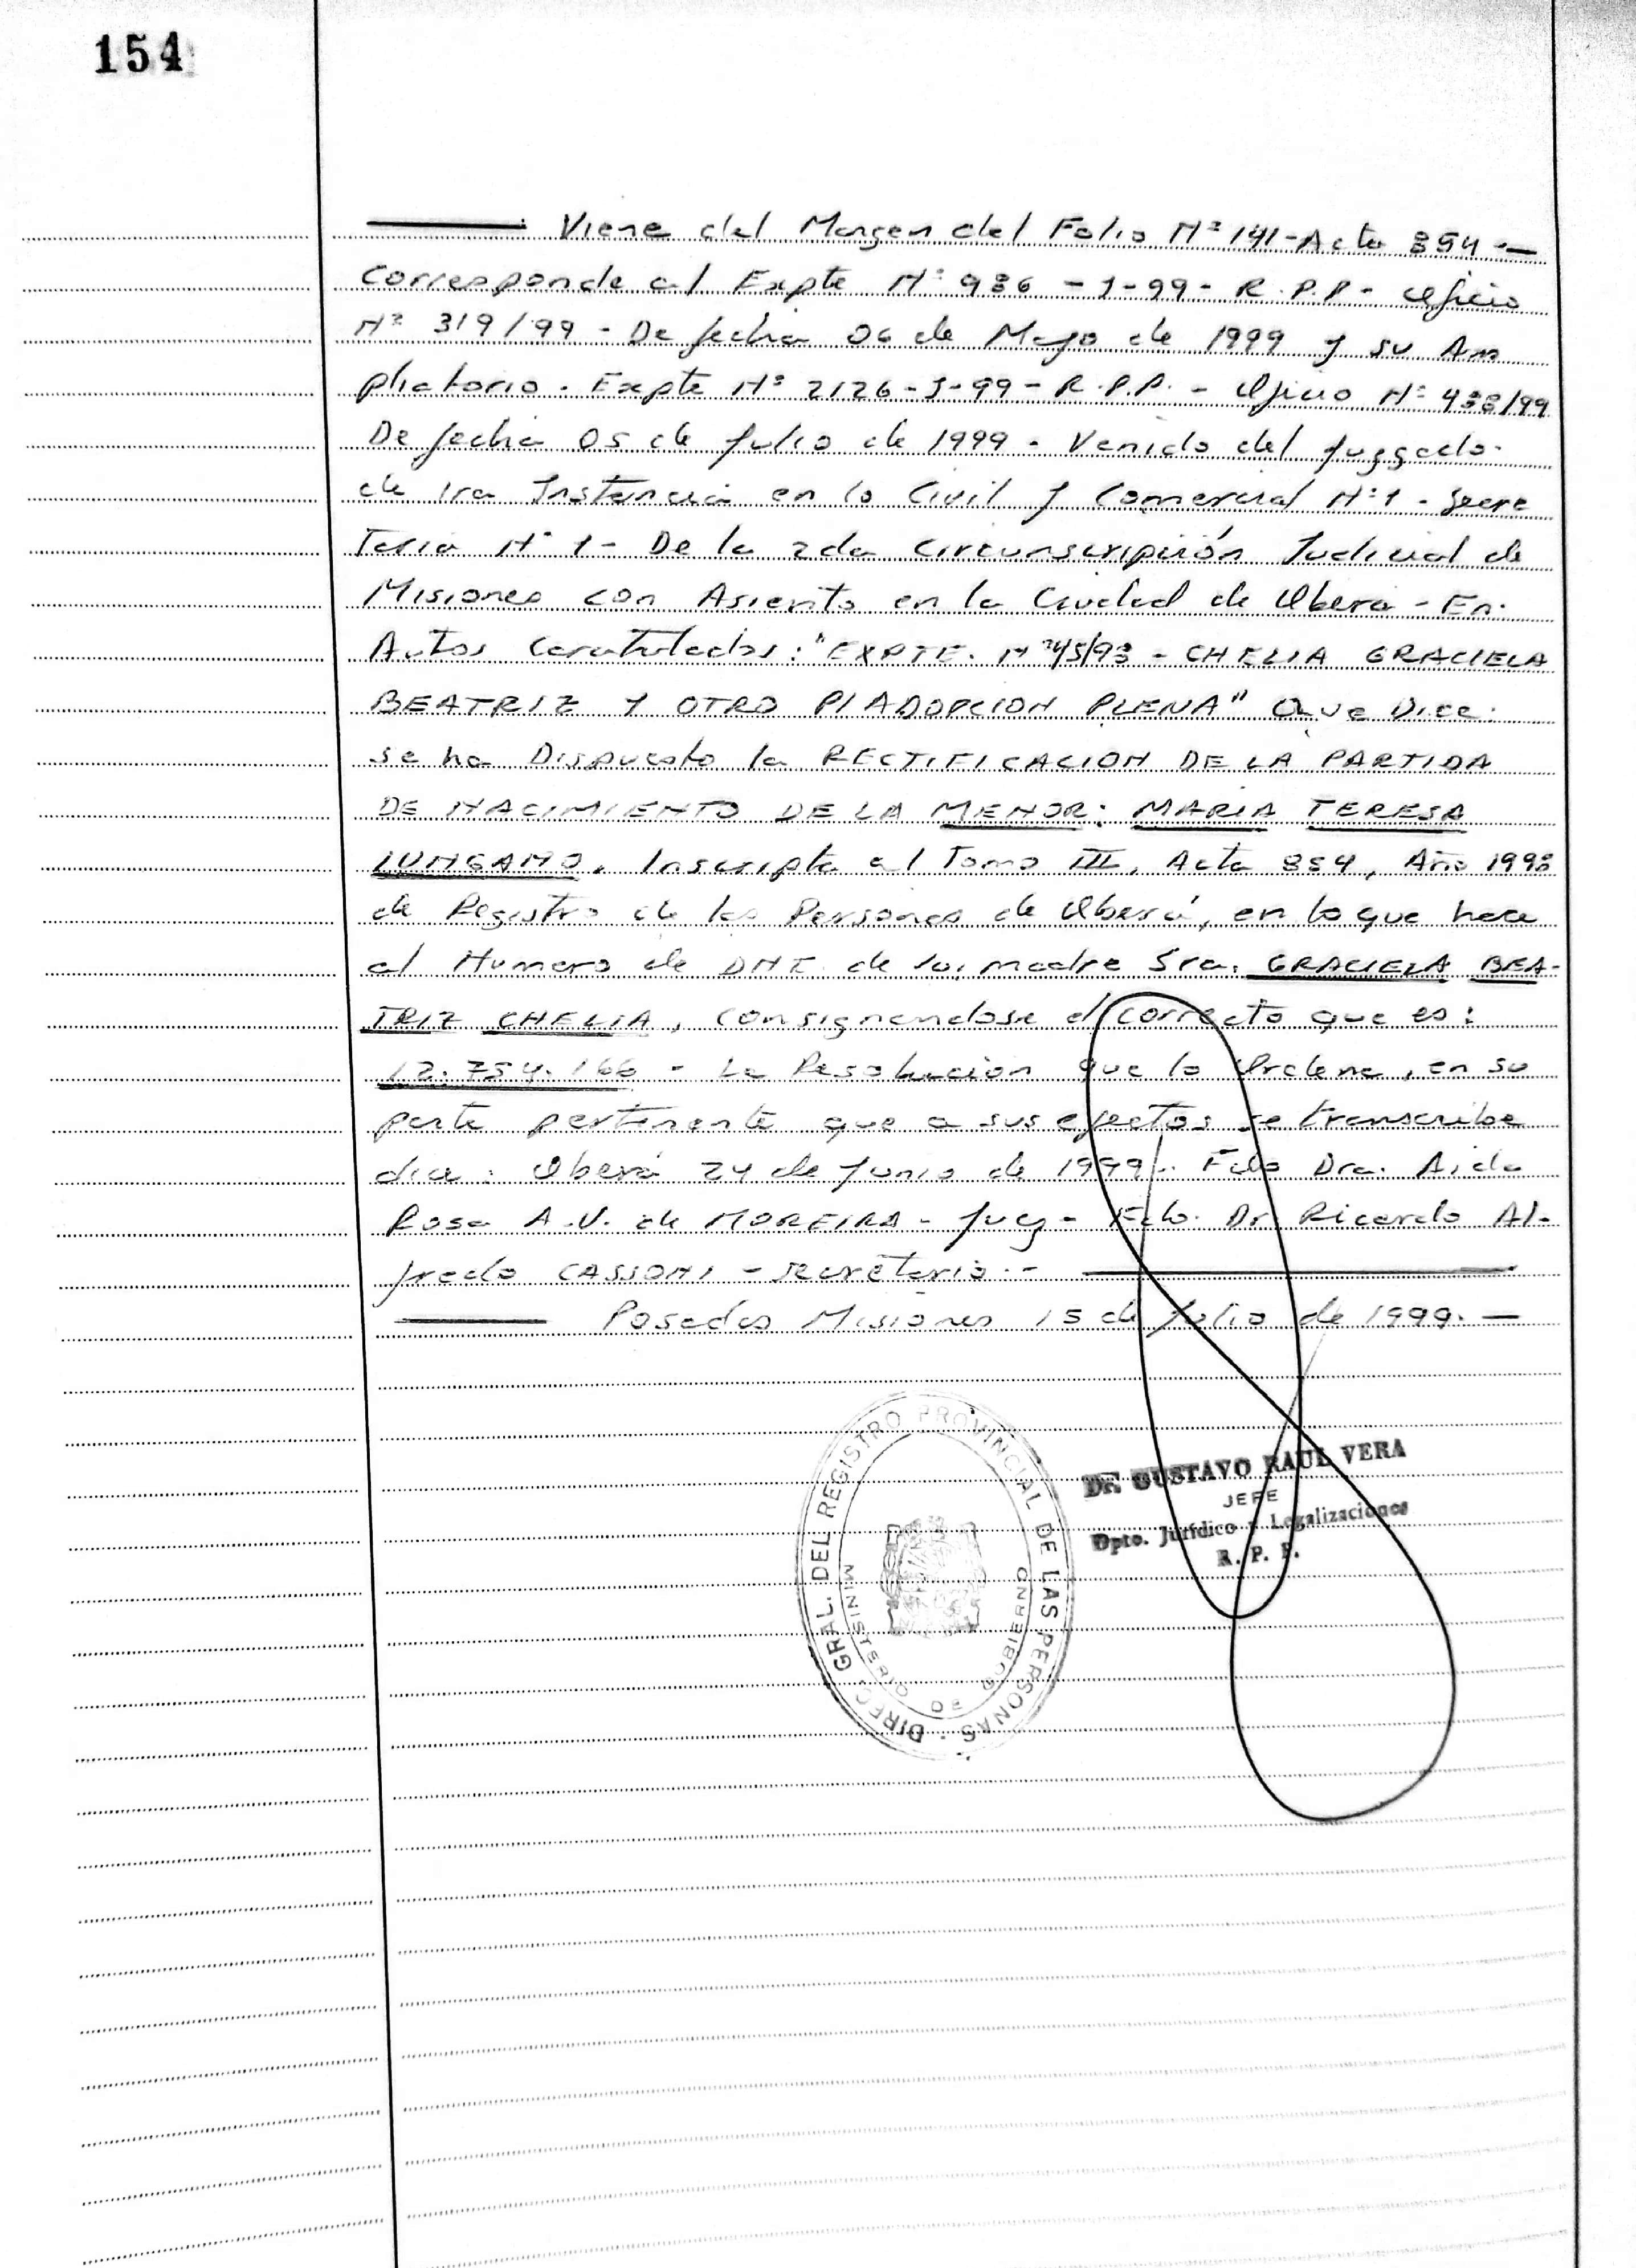 154
Viene del Margen del Folio Nº 141 - Acta 854 -
Corresponde al Expte Nº 986 - J-99 - R.P.P - Oficio
Nº 319/99 - De fecha 06 de Mayo de 1999 y su Am
pliatorio - Expte Nº 2126 - J-99 - R.P.P. - Oficio Nº 488/99
De fecha 05 de Julio de 1999 - Venido del Juzgado
de 1ra Instancia en lo Civil y Comercial Nº 1 - Secre
taria Nº 1 - De la 2da Circunscripción Judicial de
Misiones con Asiento en la Ciudad de Obera - En
Autos Caratulados: "EXPTE. Nº 45/98 - CHELIA GRACIELA
BEATRIZ Y OTRO P/ADOPCION PLENA" Que Dice:
se ha Dispuesto la RECTIFICACION DE LA PARTIDA
DE NACIMIENTO DE LA MENOR: MARIA TERESA
LUNGANO, Inscripta al Tomo III, Acta 854, Año 1998
de Registro de las Personas de Oberá, en lo que hace
al Numero de DNI de la madre Sra. GRACIELA BEA-
TRIZ CHELIA, consignandose el correcto que es:
12.754.166 - La Resolución que lo Ordena, en su
parte pertinente que a sus efectos se transcribe
dice: Oberá 24 de Junio de 1999. Fdo Dra. Aida
Rosa A.V. de MOREIRA - Juez - Fdo. Dr Ricardo Al-
fredo CASSONI - secretario.-
Posadas Misiones 15 de Julio de 1999. -
DIREC. GRAL. DEL REGISTRO PROVINCIAL DE LAS PERSONAS
MINISTERIO DE GOBIERNO
Dr. GUSTAVO RAUL VERA
JEFE
Dpto. Jurídico y Legalizaciones
R. P. P.